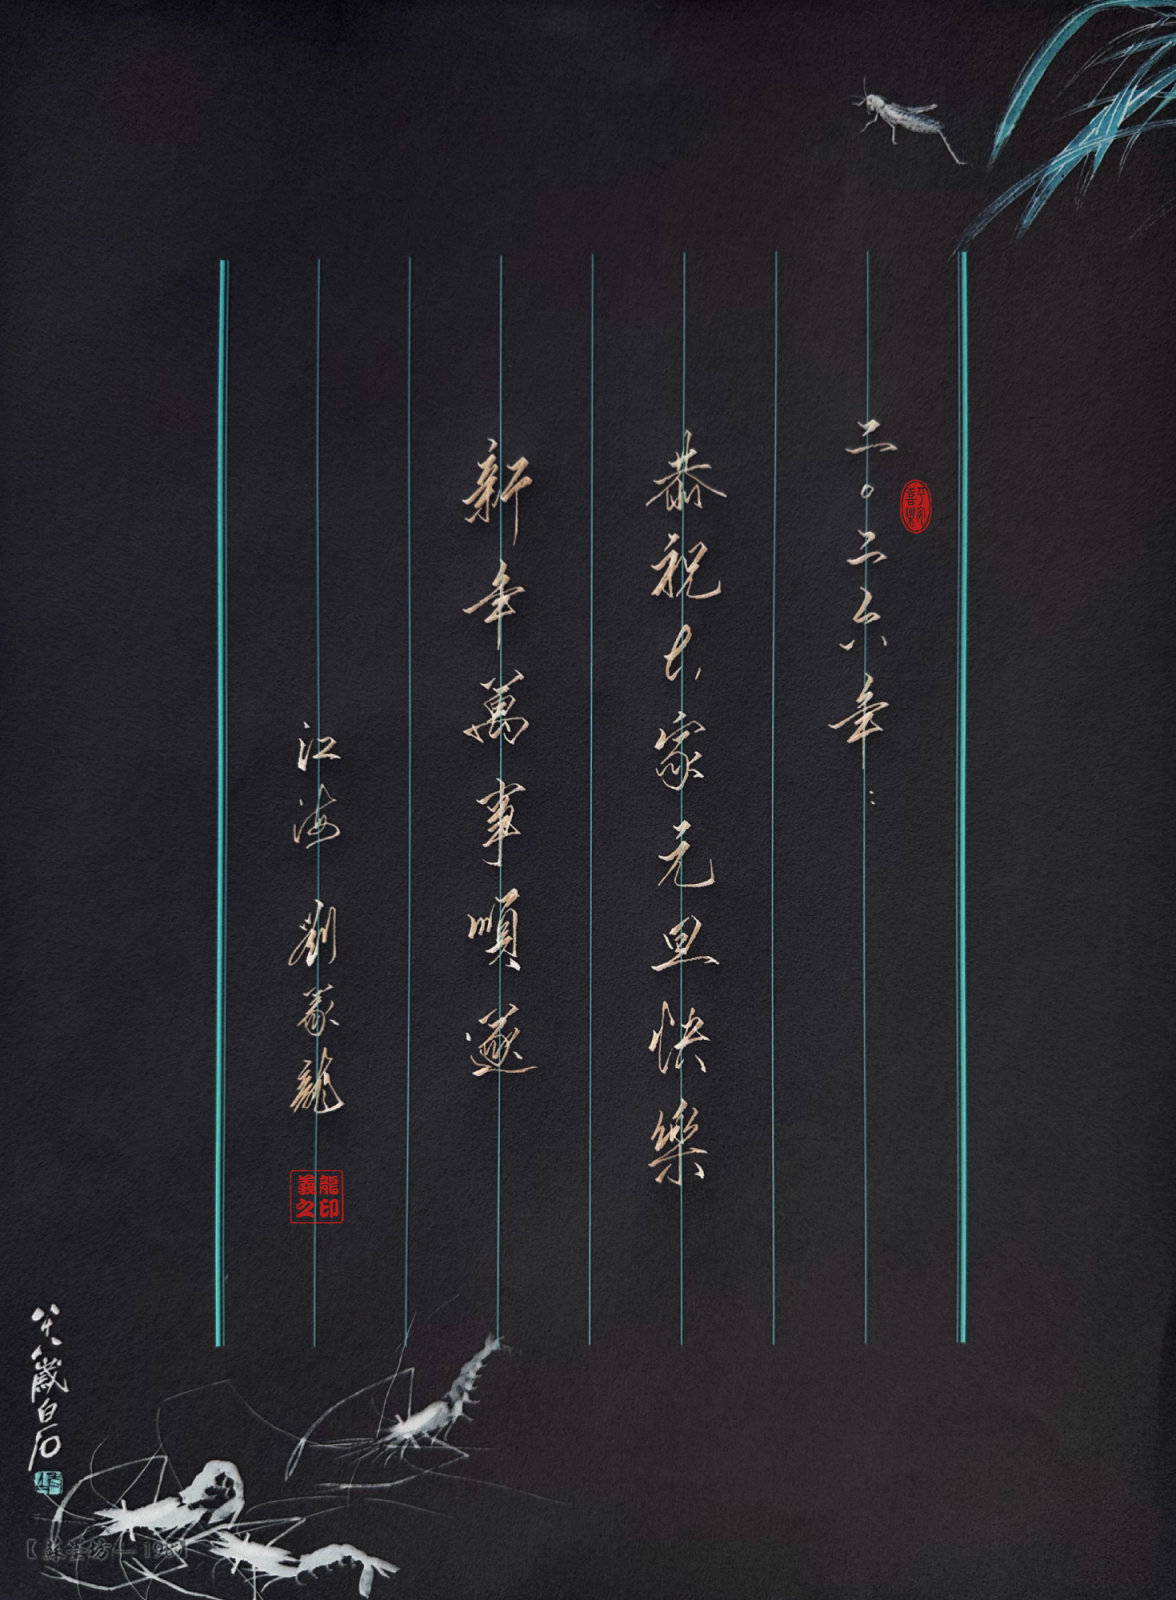 二〇二六年：
恭祝大家元旦快樂
新年萬事順遂
江海 劉義龍
龍印
義之
八十八歲白石